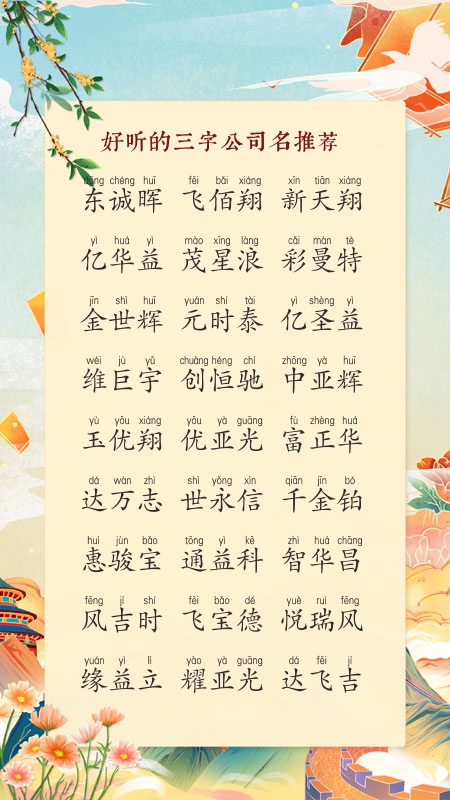 好听的三字公司名推荐
dōng chéng huī fēi bǎi xiáng xīn tiān xiáng
东诚晖 飞佰翔 新天翔
yì huá yì mào xīng làng cǎi màn tè
亿华益 茂星浪 彩曼特
jīn shì huī yuán shí tài yì shèng yì
金世辉 元时泰 亿圣益
wéi jù yǔ chuàng héng chí zhōng yà huī
维巨宇 创恒驰 中亚辉
yù yōu xiáng yōu yà guāng fù zhèng huá
玉优翔 优亚光 富正华
dá wàn zhì shì yǒng xìn qiān jīn bó
达万志 世永信 千金铂
huì jùn bǎo tōng yì kē zhì huá chāng
惠骏宝 通益科 智华昌
fēng jí shí fēi bǎo dé yuè ruì fēng
风吉时 飞宝德 悦瑞风
yuán yì lì yào yà guāng dá fēi jí
缘益立 耀亚光 达飞吉